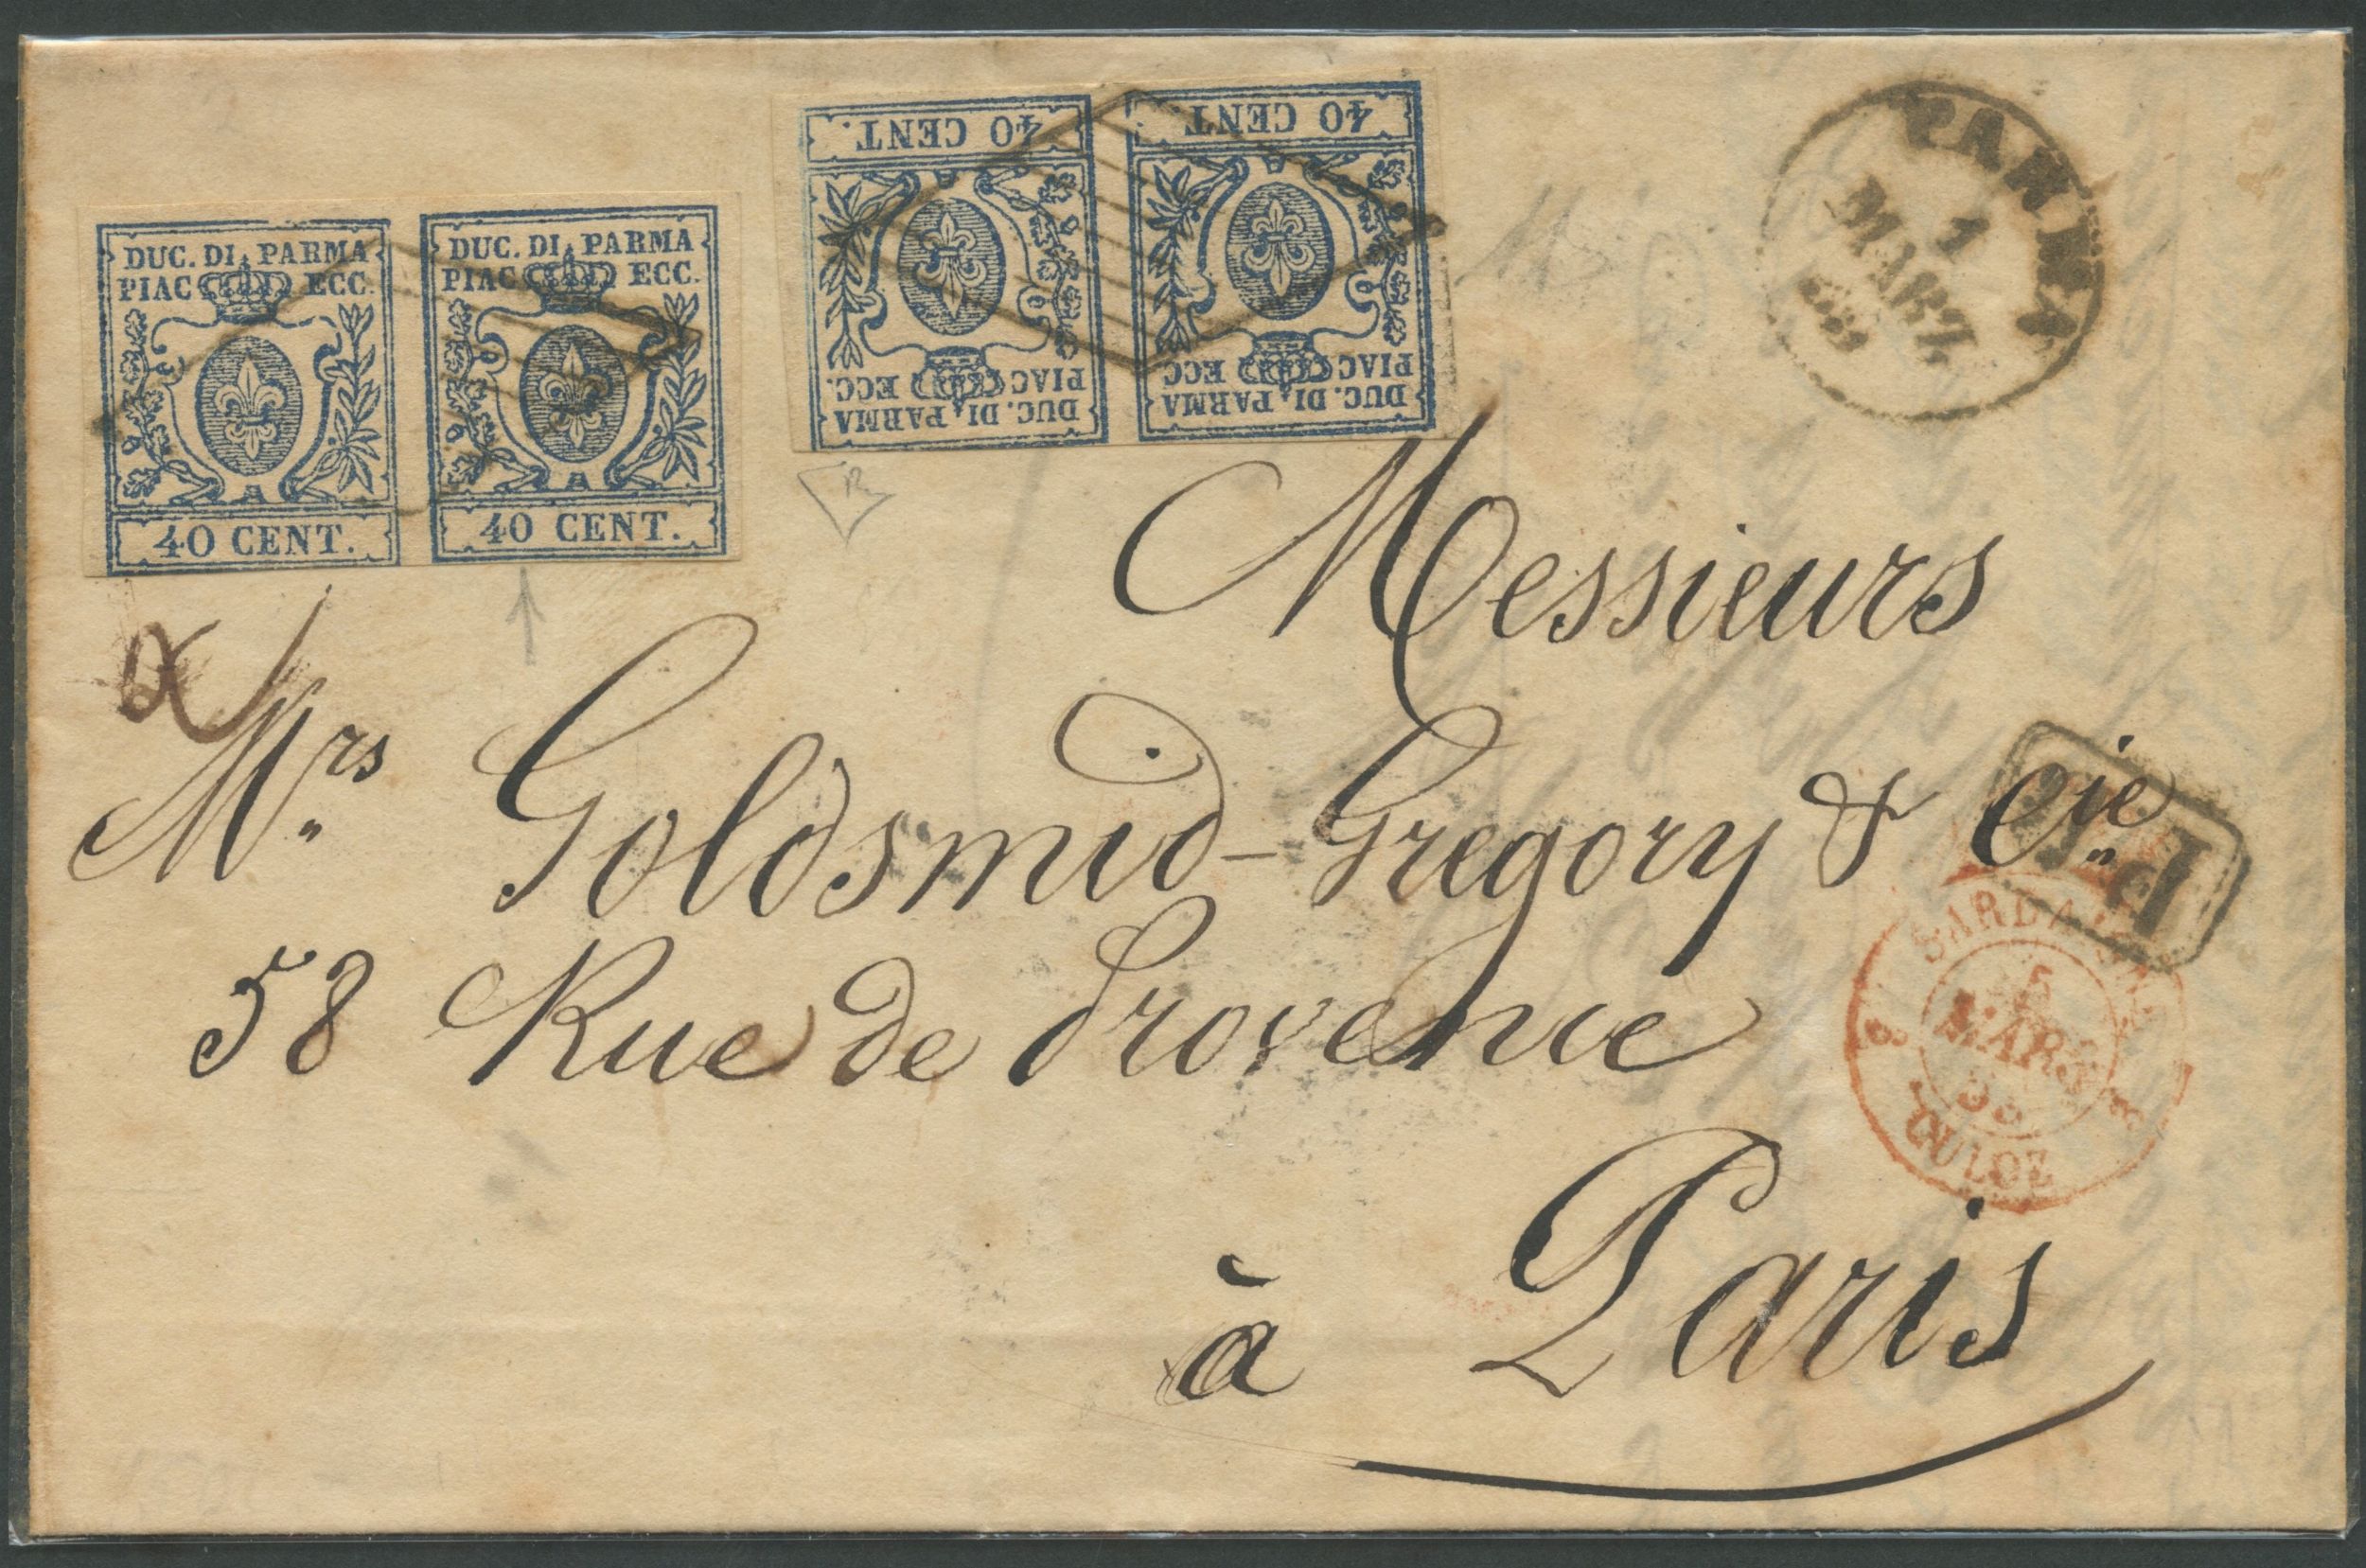 DUC. DI PARMA
PIAC ECC.
40 CENT.
DUC. DI PARMA
PIAC ECC.
40 CENT.
DUC. DI PARMA
PIAC ECC.
40 CENT.
DUC. DI PARMA
PIAC ECC
40 CENT
PARMA
1
MARZ.
R
Messieurs
Mrs Goldsmid-Gregory & Cie
58 Rue de Provence
à Paris
P.D.
5
MARS
CULOZ